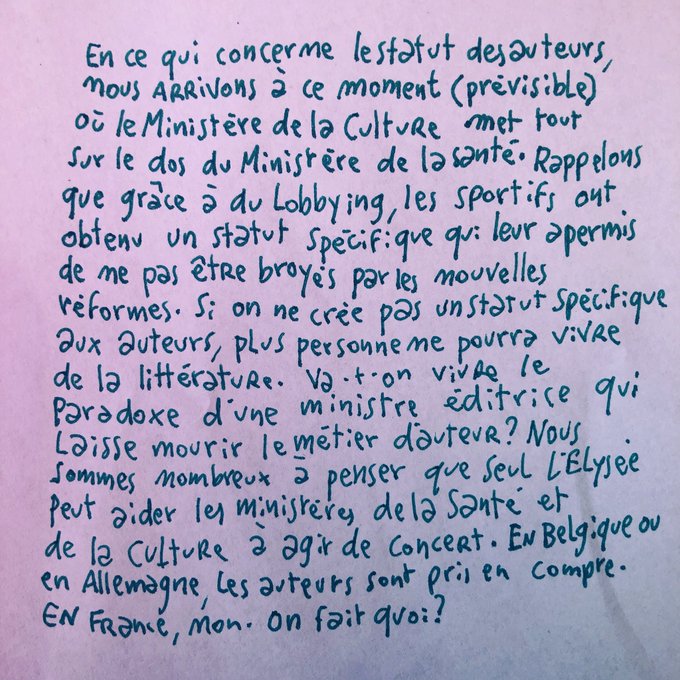 En ce qui concerne le statut des auteurs,
nous ARRIVONS à ce moment (prévisible)
où le Ministère de la Culture met tout
sur le dos du Ministère de la santé. Rappelons
que grâce à du Lobbying, les sportifs ont
obtenu un statut spécifique qui leur a permis
de ne pas être broyés par les nouvelles
réformes. Si on ne crée pas un statut spécifique
aux auteurs, plus personne ne pourra vivre
de la littérature. Va-t-on vivre le
paradoxe d'une ministre éditrice qui
Laisse mourir le métier d'auteur? Nous
sommes nombreux à penser que seul L'Elysée
peut aider les ministères de la Santé et
de la Culture à agir de concert. En Belgique ou
en Allemagne, les auteurs sont pris en compte.
EN France, non. On fait quoi?